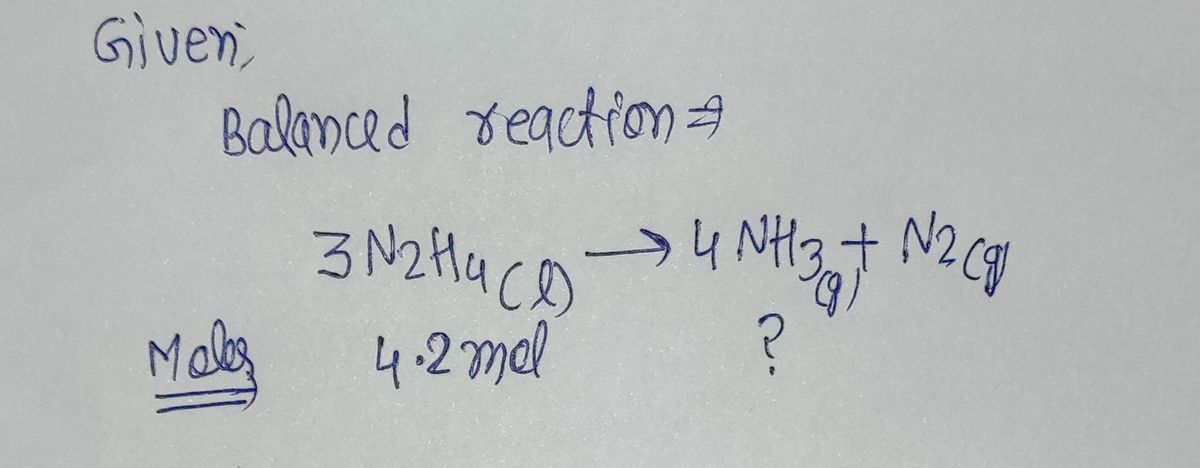 Given,
Balanced reaction ⇒
3 N2H4 (l) → 4 NH3 (g) + N2 (g)
Moles 4.2 mol ?